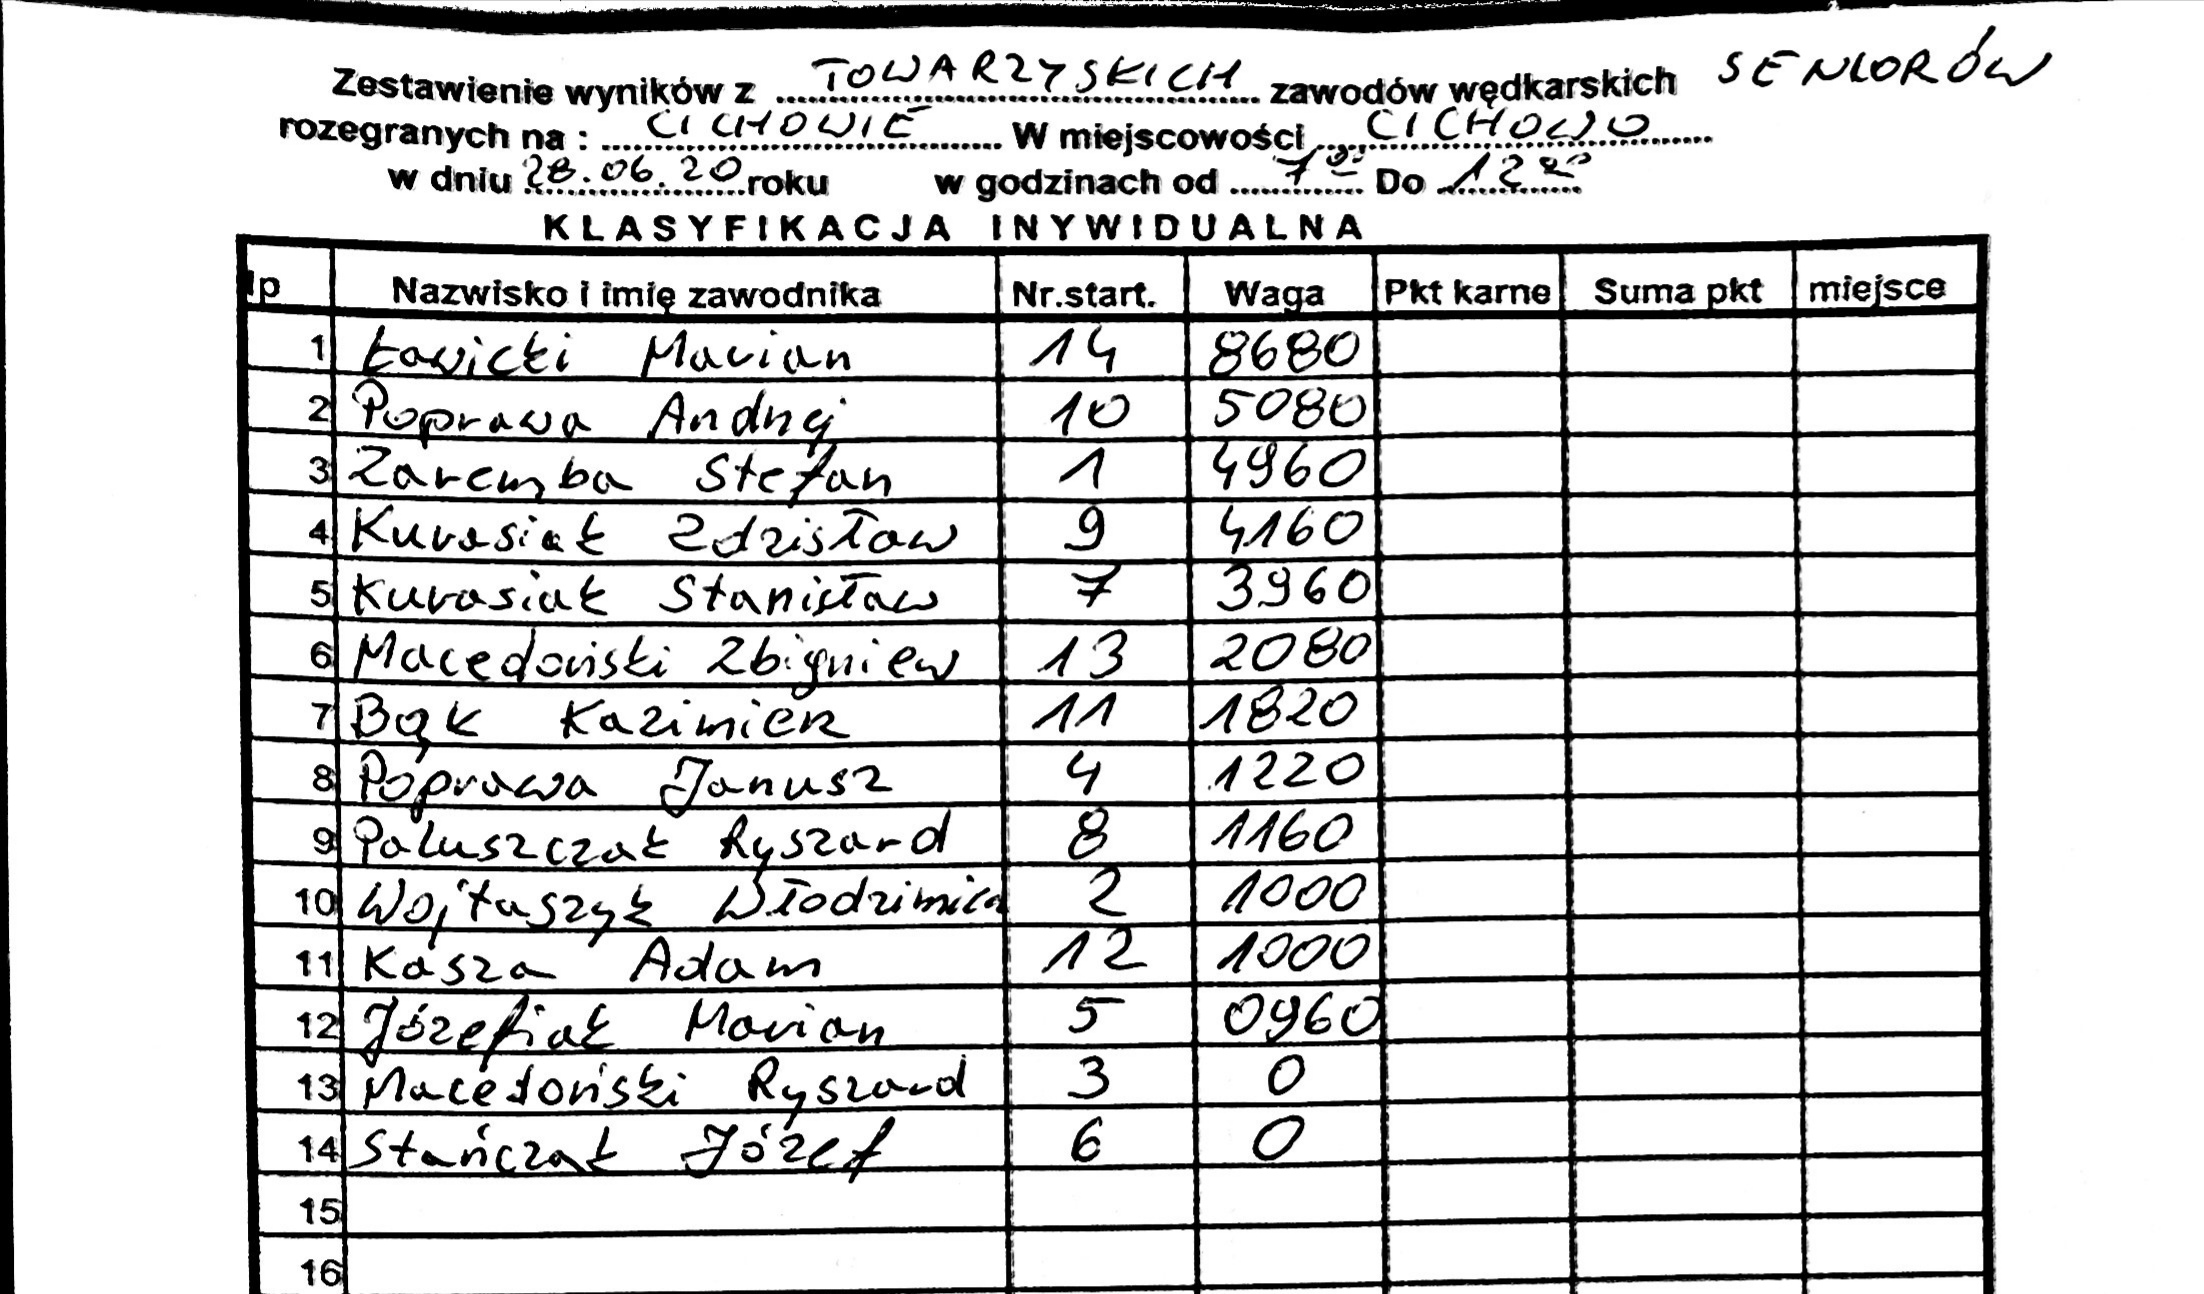 Zestawienie wyników z TOWARZYSKICH zawodów wędkarskich SENIORÓW
rozegranych na : CICHOWIE W miejscowości CICHOWO
w dniu 28.06.20 roku w godzinach od 7⁰⁰ Do 12⁰⁰
KLASYFIKACJA INYWIDUALNA
lp Nazwisko i imię zawodnika Nr.start. Waga Pkt karne Suma pkt miejsce
1 Ławicki Marian 14 8680
2 Poprawa Andrzej 10 5080
3 Zaremba Stefan 1 4960
4 Kurasiak Zdzisław 9 4160
5 Kurasiak Stanisław 7 3960
6 Macedoński Zbigniew 13 2080
7 Bąk Kazimierz 11 1820
8 Poprawa Janusz 4 1220
9 Paluszczak Ryszard 8 1160
10 Wojtaszyk Włodzimierz 2 1000
11 Kasza Adam 12 1000
12 Józefiak Marian 5 0960
13 Macedoński Ryszard 3 0
14 Stańczak Józef 6 0
15
16